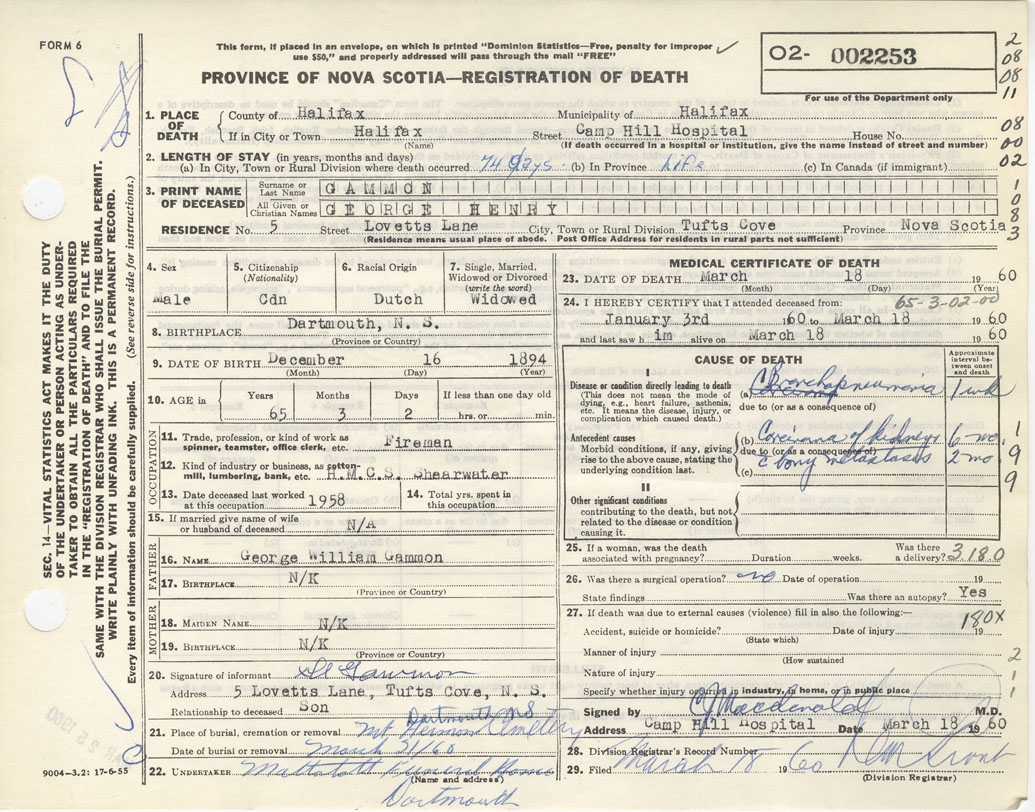 FORM 6
This form, if placed in an envelope, on which is printed "Dominion Statistics—Free, penalty for improper
use $50," and properly addressed will pass through the mail "FREE"
PROVINCE OF NOVA SCOTIA—REGISTRATION OF DEATH
02- 002253
For use of the Department only
2
08
08
11
08
00
02
1
0
8
3
SEC. 14—VITAL STATISTICS ACT MAKES IT THE DUTY
OF THE UNDERTAKER OR PERSON ACTING AS UNDER-
TAKER TO OBTAIN ALL THE PARTICULARS REQUIRED
IN THE "REGISTRATION OF DEATH" AND TO FILE THE
SAME WITH THE DIVISION REGISTRAR WHO SHALL ISSUE THE BURIAL PERMIT.
WRITE PLAINLY WITH UNFADING INK. THIS IS A PERMANENT RECORD.
Every item of information should be carefully supplied. (See reverse side for instructions.)
1. PLACE OF DEATH County of Halifax Municipality of Halifax
If in City or Town Halifax Street Camp Hill Hospital House No.
(Name) (If death occurred in a hospital or institution, give the name instead of street and number)
2. LENGTH OF STAY (in years, months and days)
(a) In City, Town or Rural Division where death occurred 74 days (b) In Province Life (c) In Canada (if immigrant)
3. PRINT NAME OF DECEASED Surname or Last Name GAMMON
All Given or Christian Names GEORGE HENRY
RESIDENCE No. 5 Street Lovetts Lane City, Town or Rural Division Tufts Cove Province Nova Scotia
(Residence means usual place of abode. Post Office Address for residents in rural parts not sufficient)
4. Sex
Male
5. Citizenship
(Nationality)
Cdn
6. Racial Origin
Dutch
7. Single, Married,
Widowed or Divorced
(write the word)
Widowed
8. BIRTHPLACE Dartmouth, N. S.
(Province or Country)
9. DATE OF BIRTH December 16 1894
(Month) (Day) (Year)
10. AGE in Years Months Days If less than one day old
65 3 2 hrs. or min.
OCCUPATION
11. Trade, profession, or kind of work as
spinner, teamster, office clerk, etc. Fireman
12. Kind of industry or business, as cotton-
mill, lumbering, bank, etc. H.M.C.S. Shearwater
13. Date deceased last worked
at this occupation 1958
14. Total yrs. spent in
this occupation
15. If married give name of wife
or husband of deceased N/A
FATHER
16. NAME George William Gammon
17. BIRTHPLACE N/K
(Province or Country)
MOTHER
18. MAIDEN NAME N/K
19. BIRTHPLACE N/K
(Province or Country)
20. Signature of informant Gammon
Address 5 Lovetts Lane, Tufts Cove, N. S.
Relationship to deceased Son
21. Place of burial, cremation or removal Mt Hermon Cemetery
Dartmouth NS
Date of burial or removal March 21/60
22. UNDERTAKER Funeral Home
(Name and address)
Dartmouth
9004-3.2: 17-6-55
MEDICAL CERTIFICATE OF DEATH
23. DATE OF DEATH March 18 1960
(Month) (Day) (Year)
24. I HEREBY CERTIFY that I attended deceased from: 65-3-02-00
January 3rd 1960 to March 18 1960
and last saw him alive on March 18 1960
CAUSE OF DEATH
Approximate
interval be-
tween onset
and death
I
Disease or condition directly leading to death
(This does not mean the mode of
dying, e.g., heart failure, asthenia,
etc. It means the disease, injury, or
complication which caused death.)
(a) Bronchopneumonia 1 wk
due to (or as a consequence of)
Antecedent causes
Morbid conditions, if any, giving
rise to the above cause, stating the
underlying condition last.
(b) Carcinoma of kidney 6 mo.
due to (or as a consequence of)
(c) c bony metastases 2 mo
1
9
9
II
Other significant conditions
contributing to the death, but not
related to the disease or condition
causing it.
25. If a woman, was the death
associated with pregnancy? Duration weeks. Was there
a delivery? 3180
26. Was there a surgical operation? no Date of operation 19
State findings Was there an autopsy? Yes
27. If death was due to external causes (violence) fill in also the following:—
180X
Accident, suicide or homicide? Date of injury 19
(State which)
Manner of injury
(How sustained
2
1
1
Nature of injury
Specify whether injury occurred in industry, in home, or in public place
Signed by Macdonald M.D.
Address Camp Hill Hospital Date March 18 1960
28. Division Registrar's Record Number
29. Filed March 18 1960
(Division Registrar)